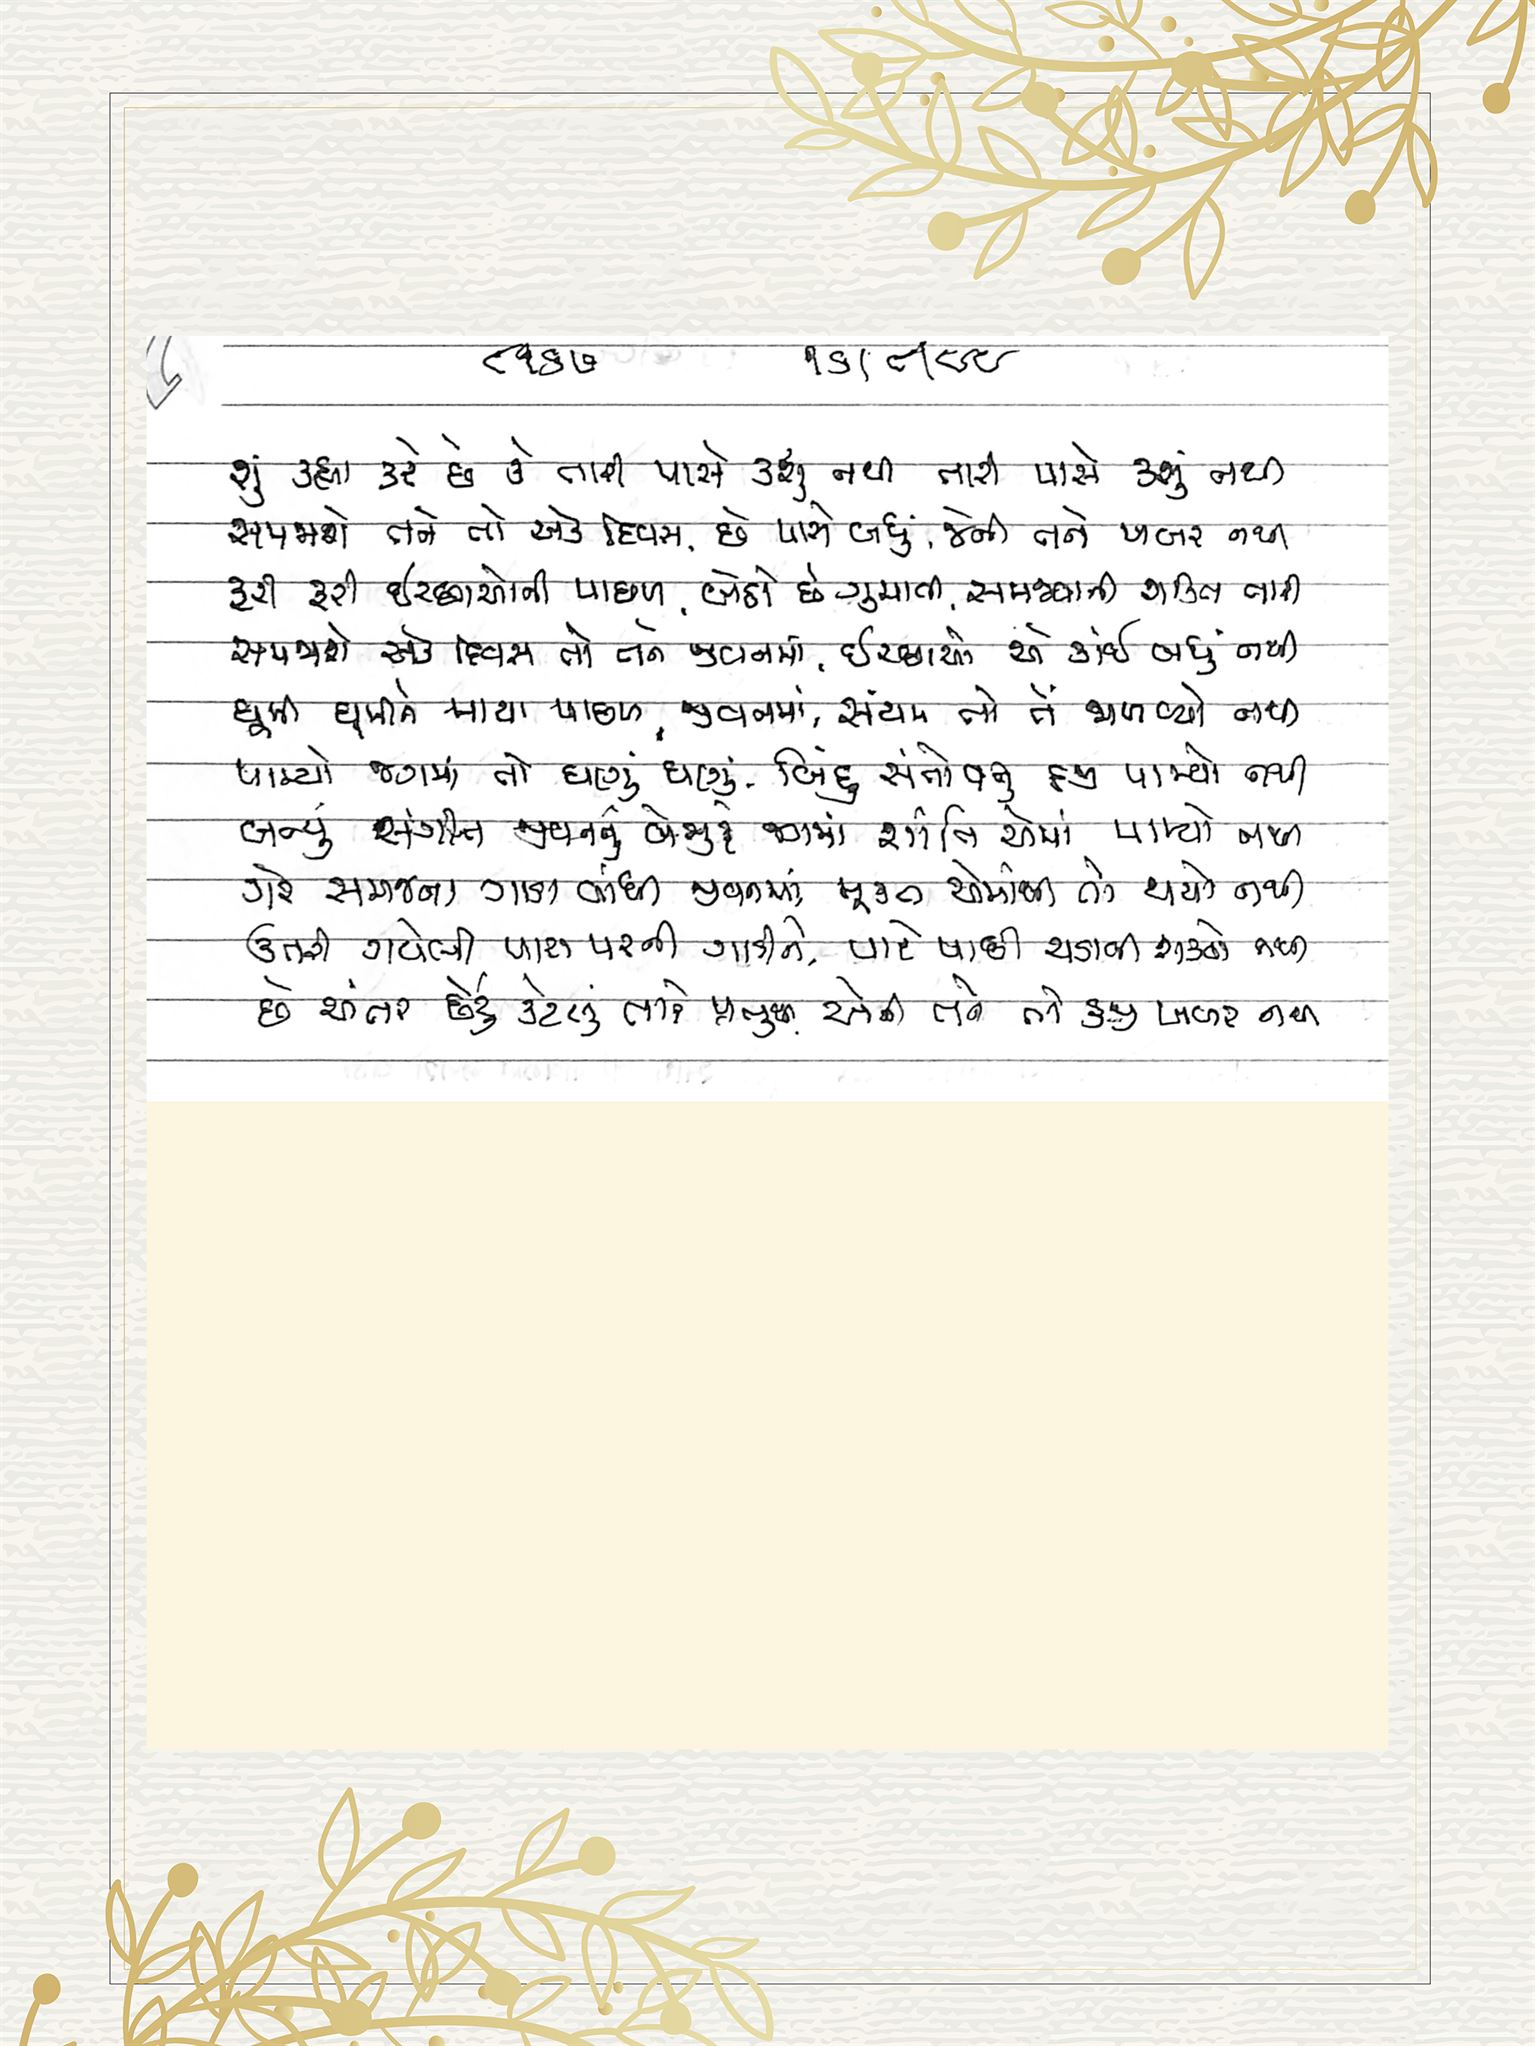 ૮૧૬૭ ૧૬/૯/૯૯
શું કહ્યા કરે છે કે તારી પાસે કશું નથી તારી પાસે કશું નથી
સમજાશે તને તો એક દિવસ, છે પાસે બધું, જેની તને ખબર નથી
કરી કરી ઈચ્છાઓની પાછળ, બેઠો છે ગુમાવી, સમજવાની શક્તિ તારી
સમજાશે એક દિવસ તો તને જીવનમાં, ઈચ્છાઓ એ કાંઈ બધું નથી
ઘૂમી ઘૂમીને માયા પાછળ, જીવનમાં, સંયમ તો તેં જાળવ્યો નથી
પામ્યો જગમાં તો ઘણું ઘણું, બિંદુ સંતોષનું હજી પામ્યો નથી
બન્યું સંગીત જીવનનું બેસુરું જગમાં શાંતિ એમાં પામ્યો નથી
ગેર સમજના ગાંઠો બાંધી જીવનમાં, મૂક્ત એમાંથી તો થયો નથી
ઉતરી ગયેલી પાટા પરની ગાડીને, પાટે પાછી ચડાવી શક્યો નથી
છે અંતર છેટું કેટલું તારે પ્રભુથી, એની તને તો કાંઈ ખબર નથી